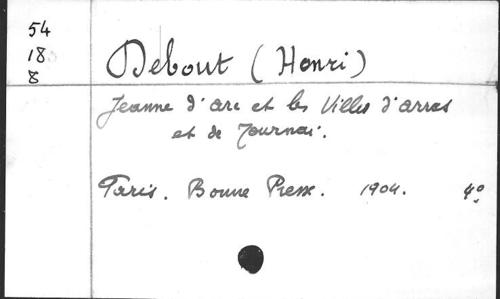 54
18
8
Debout (Henri)
Jeanne d'arc et les Villes d'arras
et de Tournai.
Paris. Bonne Presse. 1904. 4º